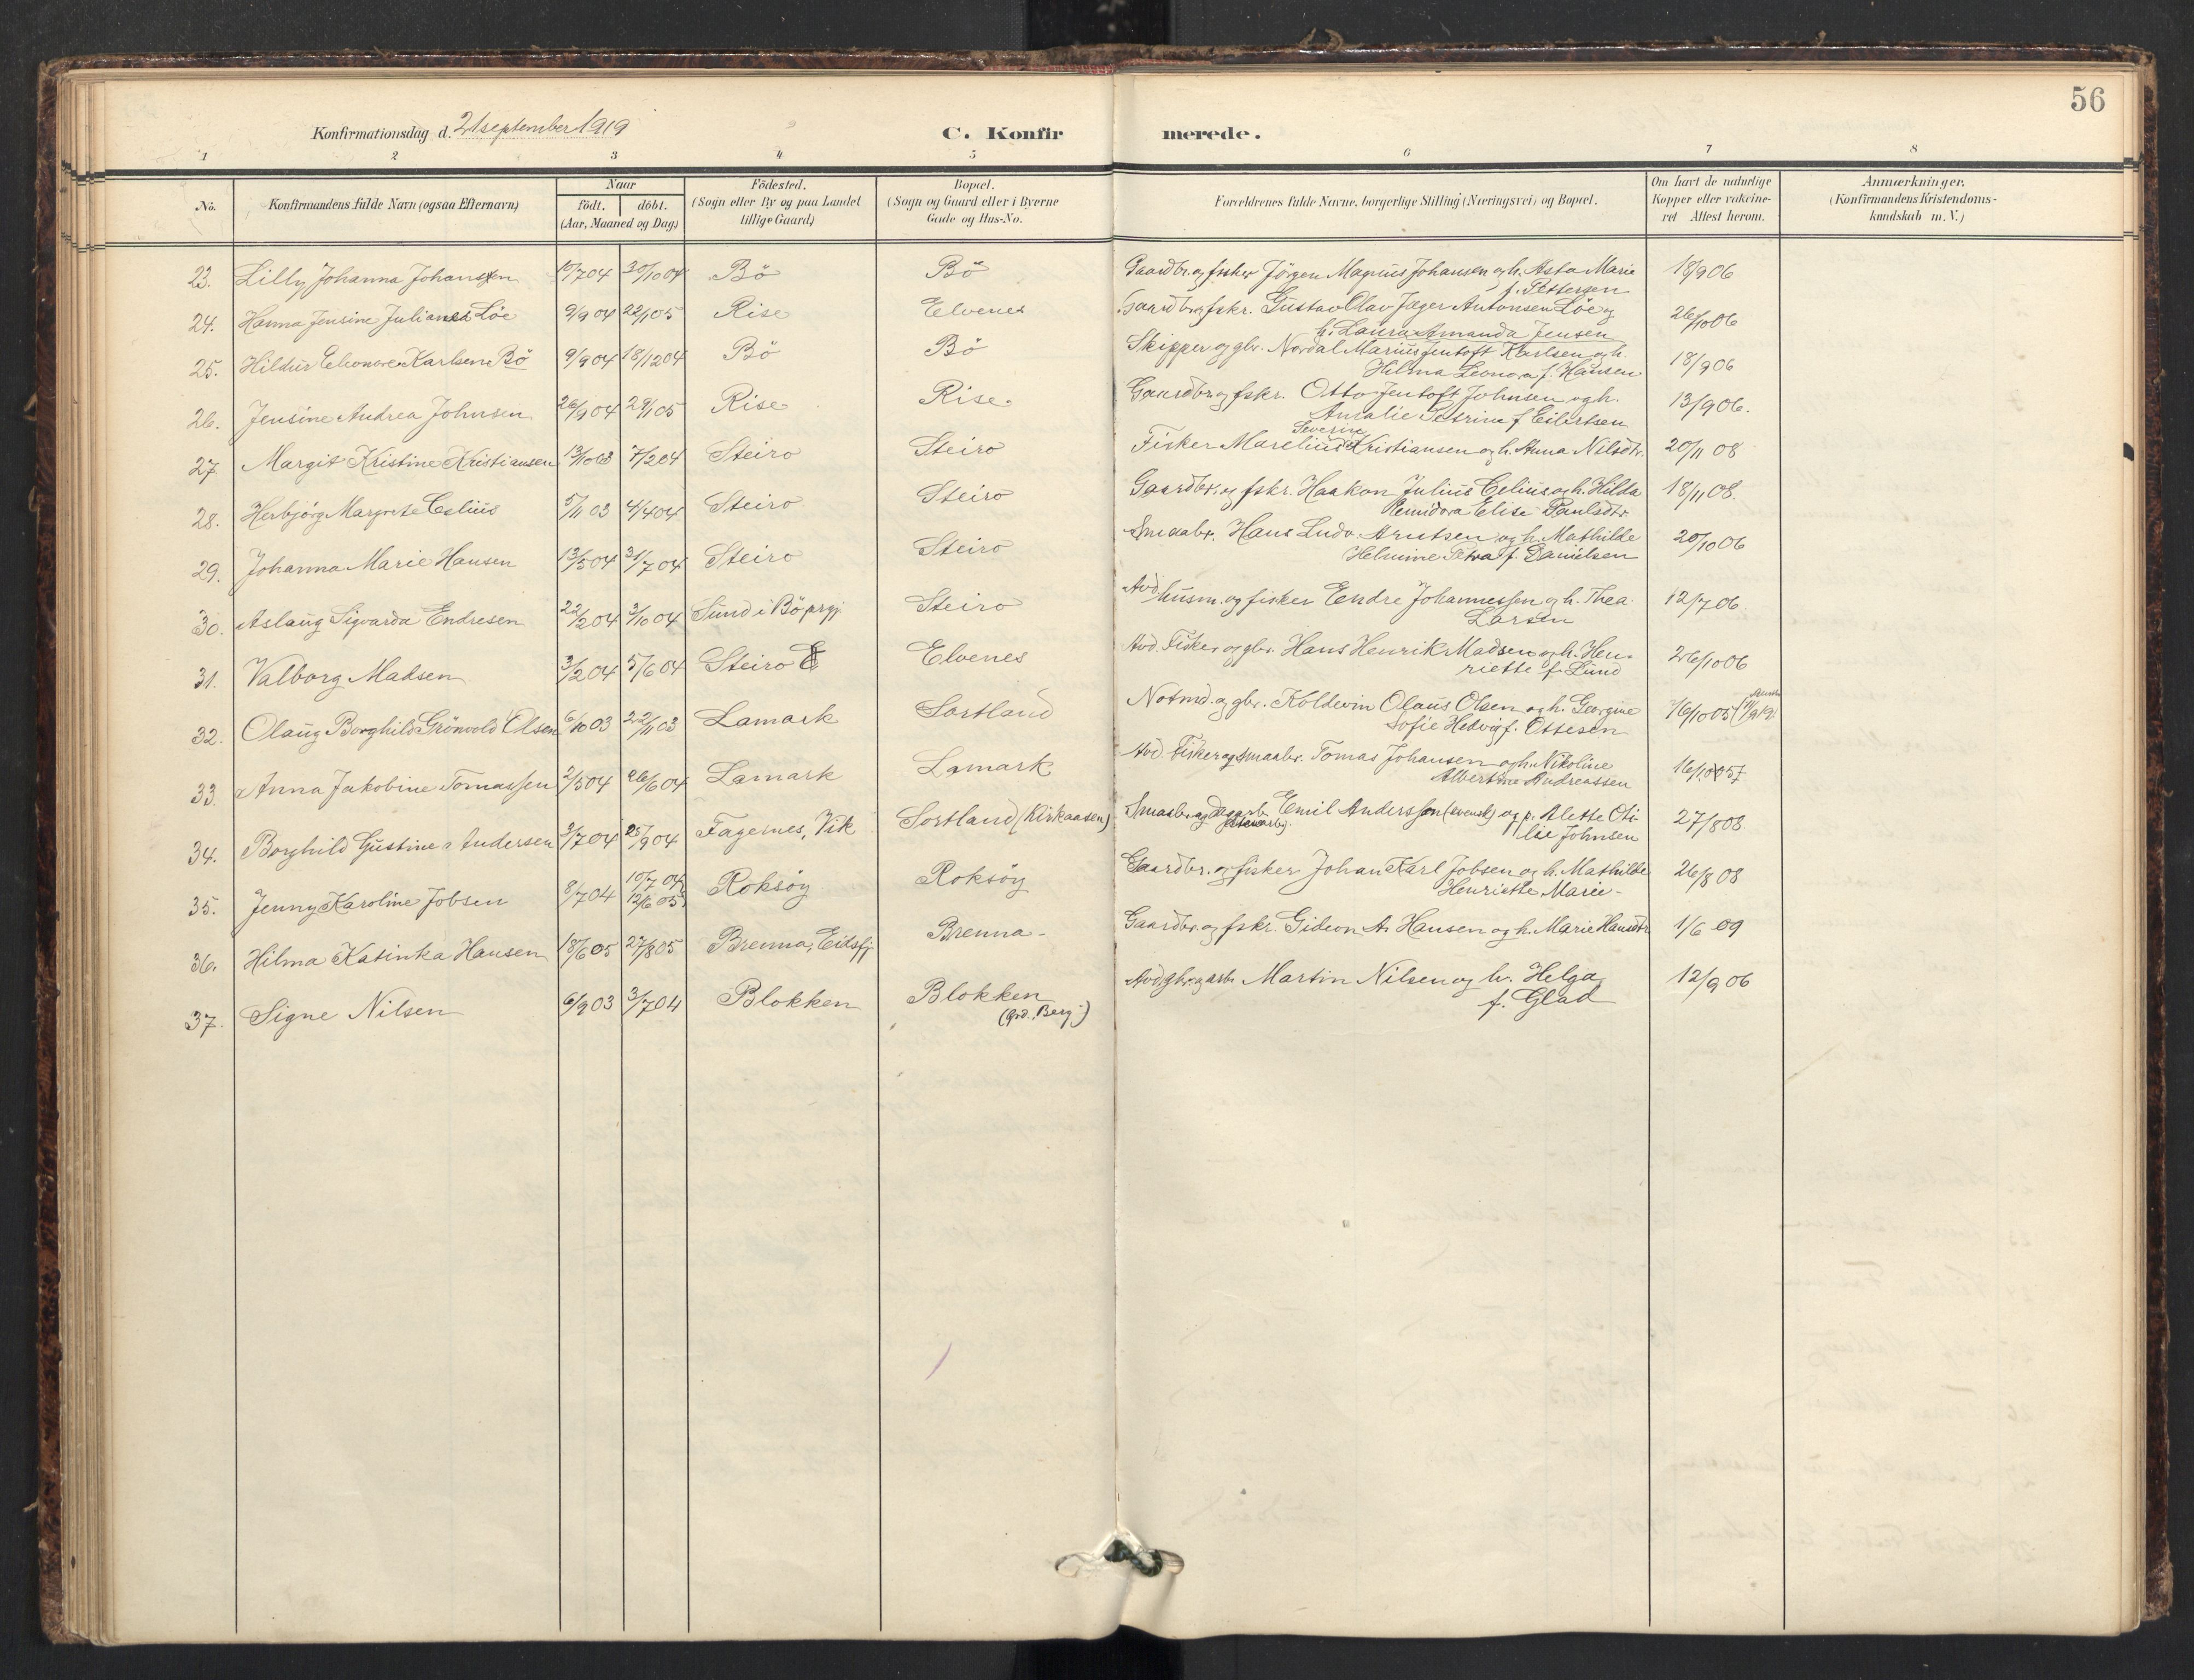 56
Konfirmationsdag d. 21 september 1919 C. Konfirmerede.
1 2 3 4 5 6 7 8
No. Konfirmandens fulde Navn (ogsaa Efternavn) Naar födt. döbt. (Aar, Maaned og Dag) Födested. (Sogn eller By og paa Landet tillige Gaard) Bopæl. (Sogn og Gaard eller i Byerne Gade og Hus-No. Forældrenes fulde Navne, borgerlige Stilling (Næringsvei) og Bopæl. Om havt de naturlige Kopper eller vakcineret Attest herom. Anmærkninger. (Konfirmandens Kristendomskundskab m. V.)
23. Lilly Johanna Johansen 30/10 04 Bö Bö Gaardbr. og fisker Jörgen Magnus Johansen og h. Asta Marie 18/9 06
f. Pettersen
24. Hanna Jensine Juliane Löe 9/9 04 22/1 05 Rise Elvenes Gaardbr. og fskr. Gustav Olav Jæger Antonsen Löe og 26/10 06
h. Laura Amanda Jensen
25. Hildur Eleonore Karlsen Bö 9/9 04 18/12 04 Bö Bö Skipper og gbr. Nordal Marius Jentoft Karlsen og h. 18/9 06
Hilma Leonora f. Hansen
26. Jensine Andrea Johnsen 26/9 04 29/1 05 Rise Rise. Gaardbr og fskr. Otto Jentoft Johnsen og h. 13/9 06.
Amalie Petrine f Eilertsen
Severin
27. Margit Kristine Kristiansen 13/10 03 7/2 04 Steiro Steiro Fisker Marelius Kristiansen og h. Anna Nilsdtr. 20/11 08
28. Herbjörg Margrete Celius 5/11 03 4/4 04 Steiro Steiro Gaardbr. og fskr. Haakon Julius Celius og h. Hilda 18/11 08.
Elise Paulsdtr.
29. Johanna Marie Hansen 13/5 04 31/7 04 Steiro Steiro Smaabr. Hans Ludv. Arntsen og h. Mathilde 20/10 06
Helmine Petra f. Danielsen
30. Aslaug Sigvarda Endresen 22/2 04 3/10 04 Sund i Bö prgj. Steiro Avd. husm. og fisker Endre Johannessen og h. Thea 12/7 06.
Larsen
31. Valborg Madsen 3/2 04 5/6 04 Steiro Elvenes Avd. Fisker og gbr. Hans Henrik Madsen og h. Hen- 26/10 06
riette f. Lund
32. Olaug Borghild Grönvold Olsen 6/10 03 22/11 03 Lamark Sortland Notmd. og gbr. Koldevin Olaus Olsen og h. Georgine 16/10 05
Sofie Hedvig f. Ottesen
33. Anna Jakobine Tomassen 2/5 04 26/6 04 Lamark Lamark Avd. Fisker og smaabr. Tomas Johansen og h. Nikoline
Albertine Andreassen
34. Borghild Gustine Andersen 3/7 04 25/9 04 Fagernes, Vik Sortland (Kirkaasen) Smaabr. og Emil Anderssen (svensk) og p. Alette Oti- 27/8 08
lie Johnsen
35. Jenny Karoline Jobsen 8/7 04 10/7 04 12/6 05 Roksöy Roksöy Gaardbr. og fisker Johan Karl Jobsen og h. Mathilde 26/8 08
Henriette Marie -
36. Hilma Katinka Hansen 18/6 05 27/8 05 Brenna, Eidsfj. Brenna - Gaardbr. og fskr. Gideon A. Hansen og h. Marie Hansdtr 1/6 09
37. Signe Nilsen 6/9 03 3/7 04 Blokken Blokken Martin Nilsen og h. Helga 12/9 06
(grd. Berg.) f. Glad